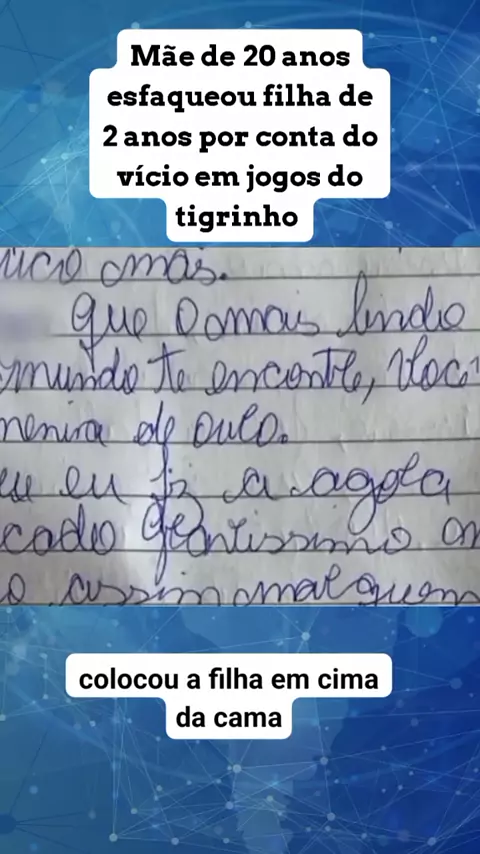 Mãe de 20 anos
esfaqueou filha de
2 anos por conta do
vício em jogos do
tigrinho
mas.
que o mais lindo
mundo te encontle,
menina de oulo.
eu fiz a agola
cado glantissimo
assim
colocou a filha em cima
da cama